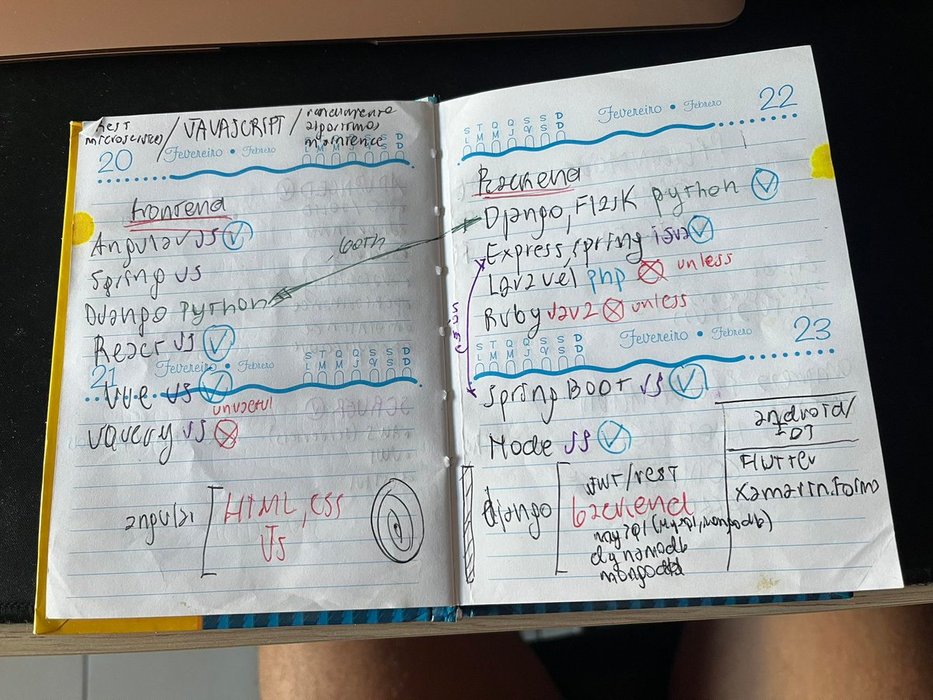 REST / JAVASCRIPT / concurrence
microservices algorithms
20 Fevereiro • Febrero S T Q Q S S D
L M M J V S D
frontend
Angular JS
Spring JS
Django PYTHON
both
React JS
21 Febrero S T Q Q S S D
L M M J V S D
Vue JS
unuseful
JQuery JS
angular [ HTML, CSS
JS
S T Q Q S S D Fevereiro • Febrero 22
L M M J V S D
Backend
Django, Flask python
Express, spring java
Laravel php unless
Ruby java unless
S T Q Q S S D Fevereiro • Febrero 23
L M M J V S D
Spring BOOT JS
Node JS
django [ JWT/rest
backend
mysql (Mysql, mongodb)
dynamodb
mongodb
android/
IOS
Flutter
Xamarin.Forms